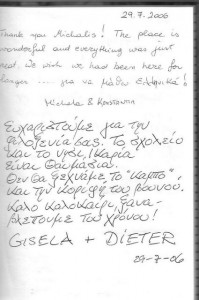 29.7.2006
Thank you Michalis! The place is
wonderful and everything was just
neat. We wish we had been here for
longer .... για να μάθω Ελληνικά!
Michala & Konstantin
Ευχαριστούμε για την
φιλοξενία σας. Το σχολείο
και το νησί, Ικαρία
είναι θαυμάσια.
Δεν θα ξεχνάμε το "Κάμπο"
και την κορυφή του βουνού.
Καλό καλοκαίρι, ξανα-
βλέπουμε του χρόνου!
GISELA + DIETER
29-7-06